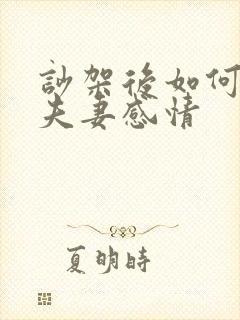 訬架後如何
夫妻感情
夏明時